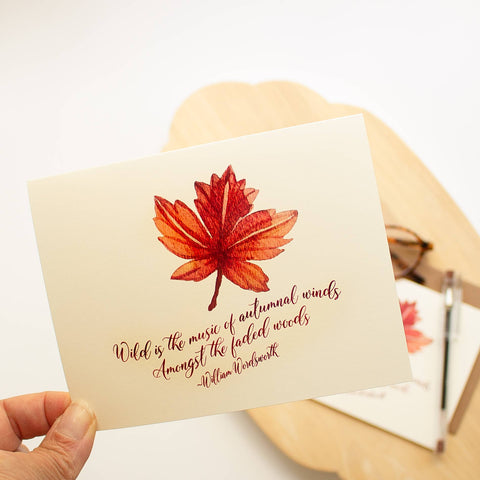 Wild is the music of autumnal winds
Amongst the faded woods
~William Wordsworth